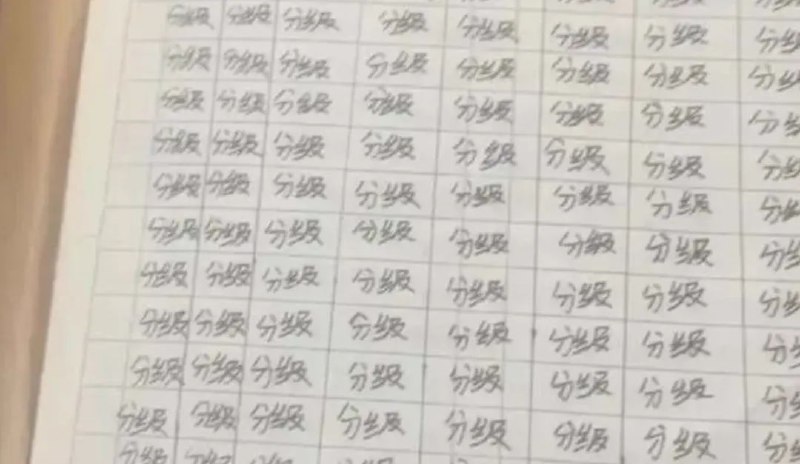 分级 分级 分级 分级 分级 分级 分级 分级
分级 分级 分级 分级 分级 分级 分级 分级
分级 分级 分级 分级 分级 分级 分级 分级
分级 分级 分级 分级 分级 分级 分级 分级
分级 分级 分级 分级 分级 分级 分级 分级
分级 分级 分级 分级 分级 分级 分级 分级
分级 分级 分级 分级 分级 分级 分级 分级
分级 分级 分级 分级 分级 分级 分级 分级
分级 分级 分级 分级 分级 分级 分级 分级
分级 分级 分级 分级 分级 分级 分级 分级
分级 分级 分级